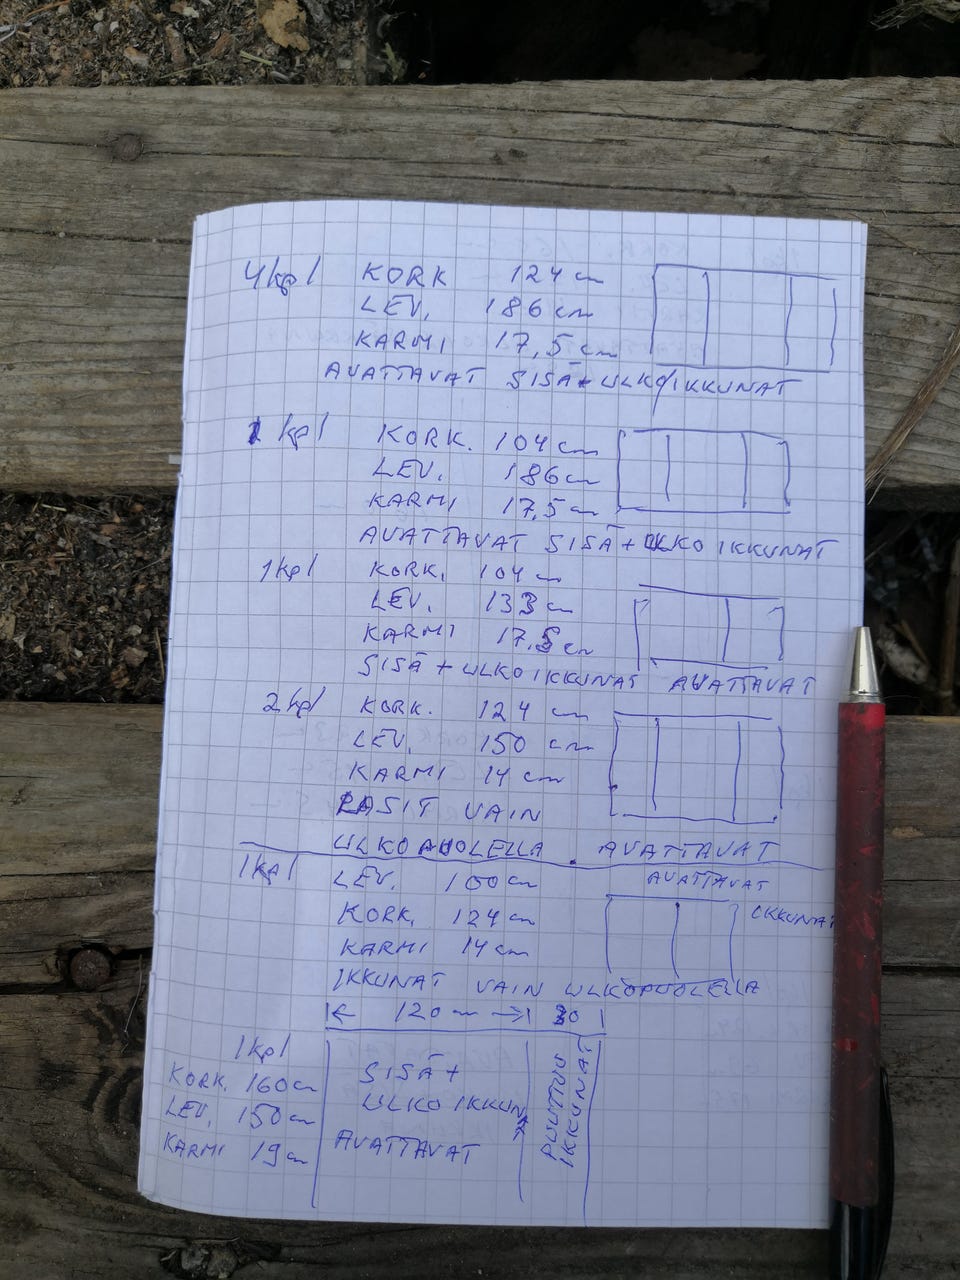 4 kpl KORK 124 cm
LEV. 186 cm
KARMI 17,5 cm
AVATTAVAT SISÄ + ULKO IKKUNAT
1 kpl KORK. 104 cm
LEV. 186 cm
KARMI 17,5 cm
AVATTAVAT SISÄ + ULKO IKKUNAT
1 kpl KORK. 104 cm
LEV. 133 cm
KARMI 17,5 cm
SISÄ + ULKO IKKUNAT AVATTAVAT
2 kpl KORK. 124 cm
LEV. 150 cm
KARMI 14 cm
LASIT VAIN
ULKOPUOLELLA. AVATTAVAT
1 kpl LEV. 100 cm AVATTAVAT
KORK. 124 cm IKKUNAT
KARMI 14 cm
IKKUNAT VAIN ULKOPUOLELLA
120 cm 30
1 kpl
KORK. 160 cm
LEV. 150 cm
KARMI 19 cm
SISÄ +
ULKO IKKUNAT
AVATTAVAT
PUUTTUU
IKKUNAT